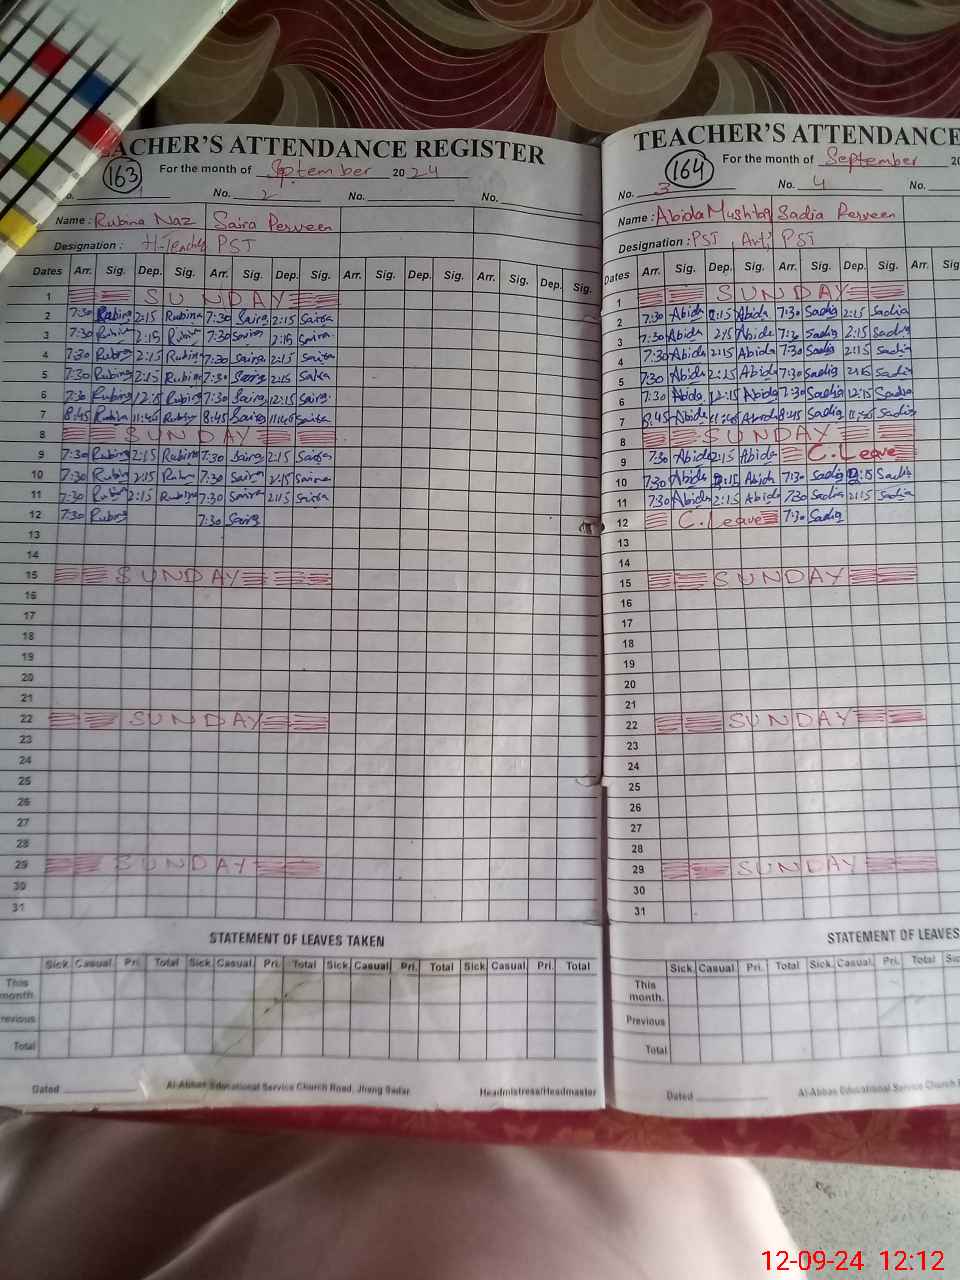 TEACHER'S ATTENDANCE REGISTER
163 For the month of September 2024
No. 1 No. 2 No. No.
Name : Rubina Naz Saira Perveen
Designation : H-Teacher PST
Dates Arr. Sig. Dep. Sig. Arr. Sig. Dep. Sig. Arr. Sig. Dep. Sig. Arr. Sig. Dep. Sig.
1 SUNDAY
2 7:30 Rubina 2:15 Rubina 7:30 Saira 2:15 Saira
3 7:30 Rubina 2:15 Rubina 7:30 Saira 2:15 Saira
4 7:30 Rubina 2:15 Rubina 7:30 Saira 2:15 Saira
5 7:30 Rubina 2:15 Rubina 7:30 Saira 2:15 Saira
6 7:30 Rubina 12:15 Rubina 7:30 Saira 12:15 Saira
7 8:45 Rubina 11:40 Rubina 8:45 Saira 11:40 Saira
8 SUNDAY
9 7:30 Rubina 2:15 Rubina 7:30 Saira 2:15 Saira
10 7:30 Rubina 2:15 Rubina 7:30 Saira 2:15 Saira
11 7:30 Rubina 2:15 Rubina 7:30 Saira 2:15 Saira
12 7:30 Rubina 7:30 Saira
13
14
15 SUNDAY
16
17
18
19
20
21
22 SUNDAY
23
24
25
26
27
28
29 SUNDAY
30
31
STATEMENT OF LEAVES TAKEN
Sick Casual Pri. Total Sick Casual Pri. Total Sick Casual Pri. Total Sick Casual Pri. Total
This month.
Previous
Total
Dated Al-Abbas Educational Service Church Road, Jhang Sadar Headmistress/Headmaster
TEACHER'S ATTENDANCE
164 For the month of September 20
No. 3 No. 4 No.
Name : Abida Mushtaq Sadia Perveen
Designation : PST, Arti PST
Dates Arr. Sig. Dep. Sig. Arr. Sig. Dep. Sig. Arr. Sig
1 SUNDAY
2 7:30 Abida 2:15 Abida 7:30 Sadia 2:15 Sadia
3 7:30 Abida 2:15 Abida 7:30 Sadia 2:15 Sadia
4 7:30 Abida 2:15 Abida 7:30 Sadia 2:15 Sadia
5 7:30 Abida 2:15 Abida 7:30 Sadia 2:15 Sadia
6 7:30 Abida 12:15 Abida 7:30 Sadia 12:15 Sadia
7 8:45 Abida 11:40 Abida 8:45 Sadia 11:40 Sadia
8 SUNDAY
9 7:30 Abida 2:15 Abida C.Leave
10 7:30 Abida 2:15 Abida 7:30 Sadia 2:15 Sadia
11 7:30 Abida 2:15 Abida 7:30 Sadia 2:15 Sadia
12 C.Leave 7:30 Sadia
13
14
15 SUNDAY
16
17
18
19
20
21
22 SUNDAY
23
24
25
26
27
28
29 SUNDAY
30
31
STATEMENT OF LEAVES
Sick Casual Pri. Total Sick Casual Pri. Total
This month.
Previous
Total
Dated Al-Abbas Educational Service Church
12-09-24 12:12